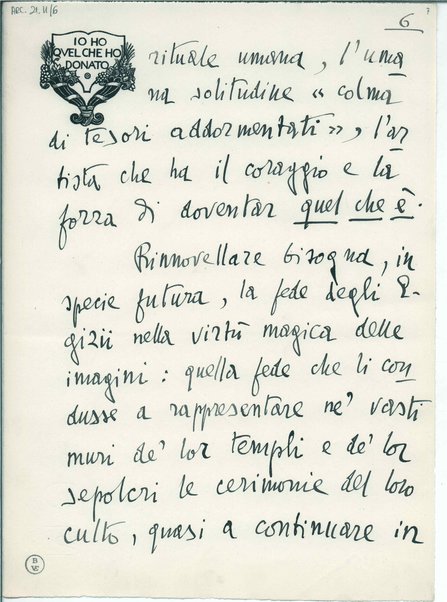 ARC. 21. II/6
7
6
IO HO
QVEL CHE HO
DONATO
rituale umana, l'uma
na solitudine « colma
di tesori addormentati », l'ar
tista che ha il coraggio e la
forza di doventar quel che è.
Rinnovellare bisogna, in
specie futura, la fede degli E-
gizii nella virtù magica delle
imagini: quella fede che li con
dusse a rappresentare ne' vasti
muri de' lor templi e de' lor
sepolcri le cerimonie del loro
culto, quasi a continuare in
B
VE